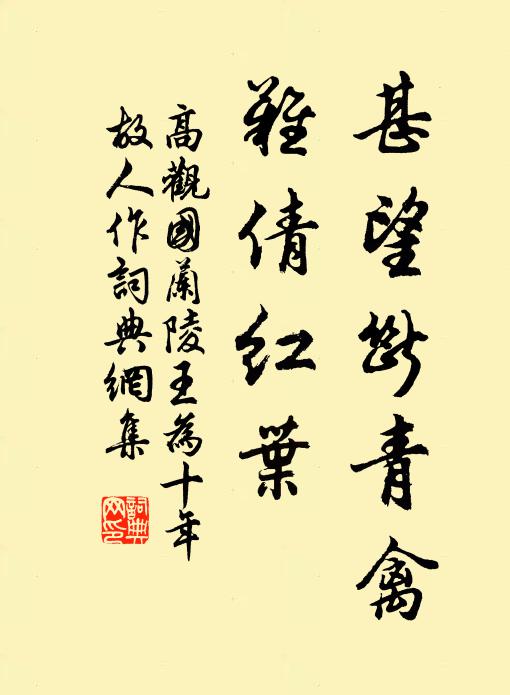 甚望断青禽
難倩紅葉
高觀國蘭陵王為十年
故人作詞典網集
詞典網印